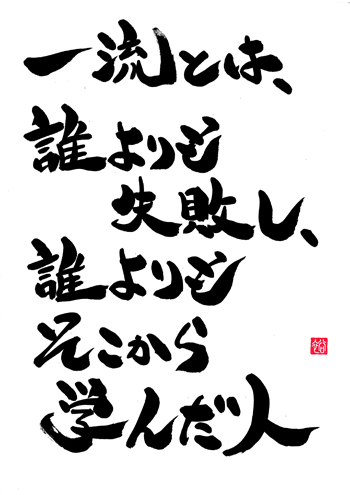 一流とは、
誰よりも
失敗し、
誰よりも
そこから
学んだ人